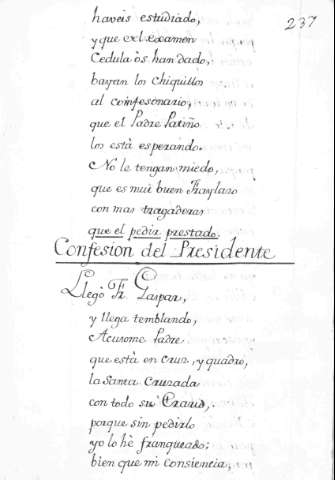 haveis estudiado,
237
y que exl examen
Cedula òs han dado,
bayan los chiquillos
al confesonario,
que el Padre Patiño
los està esperando.
No le tengan miedo,
que es mui buen
con mas tragaderas
que el pedir prestado.
Confesion del Presidente
Llegò Fr. Gaspar,
y llega temblando,
Acusome Padre
que està en Cruz, y quadro,
la Santa Cruzada
con todo su
porque sin pedirlo
yo lo hè franqueado;
bien que mi Consiencia,